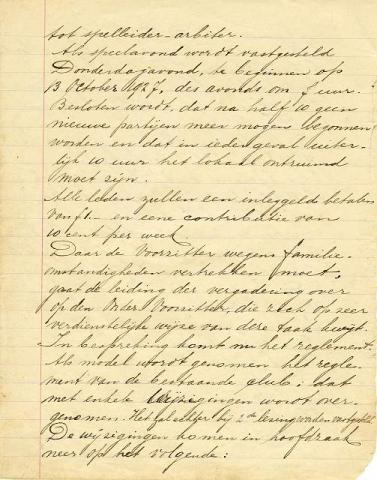 tot spelleider-arbiter.
Als speelavond wordt vastgesteld
Donderdagavond, te beginnen op
13 October 1927, des avonds om 7 uur.
Besloten wordt, dat na half 10 geen
nieuwe partijen meer mogen begonnen
worden en dat in ieder geval uiter-
lijk 10 uur het lokaal ontruimd
moet zijn.
Alle leden zullen een inleggeld betalen
van f1.— en eene contributie van
10 cent per week.
Daar de Voorzitter wegens familie-
omstandigheden vertrekken moet,
gaat de leiding der vergadering over
op den Onder Voorzitter, die zich op zeer
verdienstelijke wijze van deze taak kwijt.
In bespreking komt nu het reglement.
Als model wordt genomen het regle-
ment van de bestaande club; dat
met enkele wijzigingen wordt over-
genomen. Het zal echter bij 2de lezing worden vastgesteld.
De wijzigingen komen in hoofdzaak
neer op het volgende: